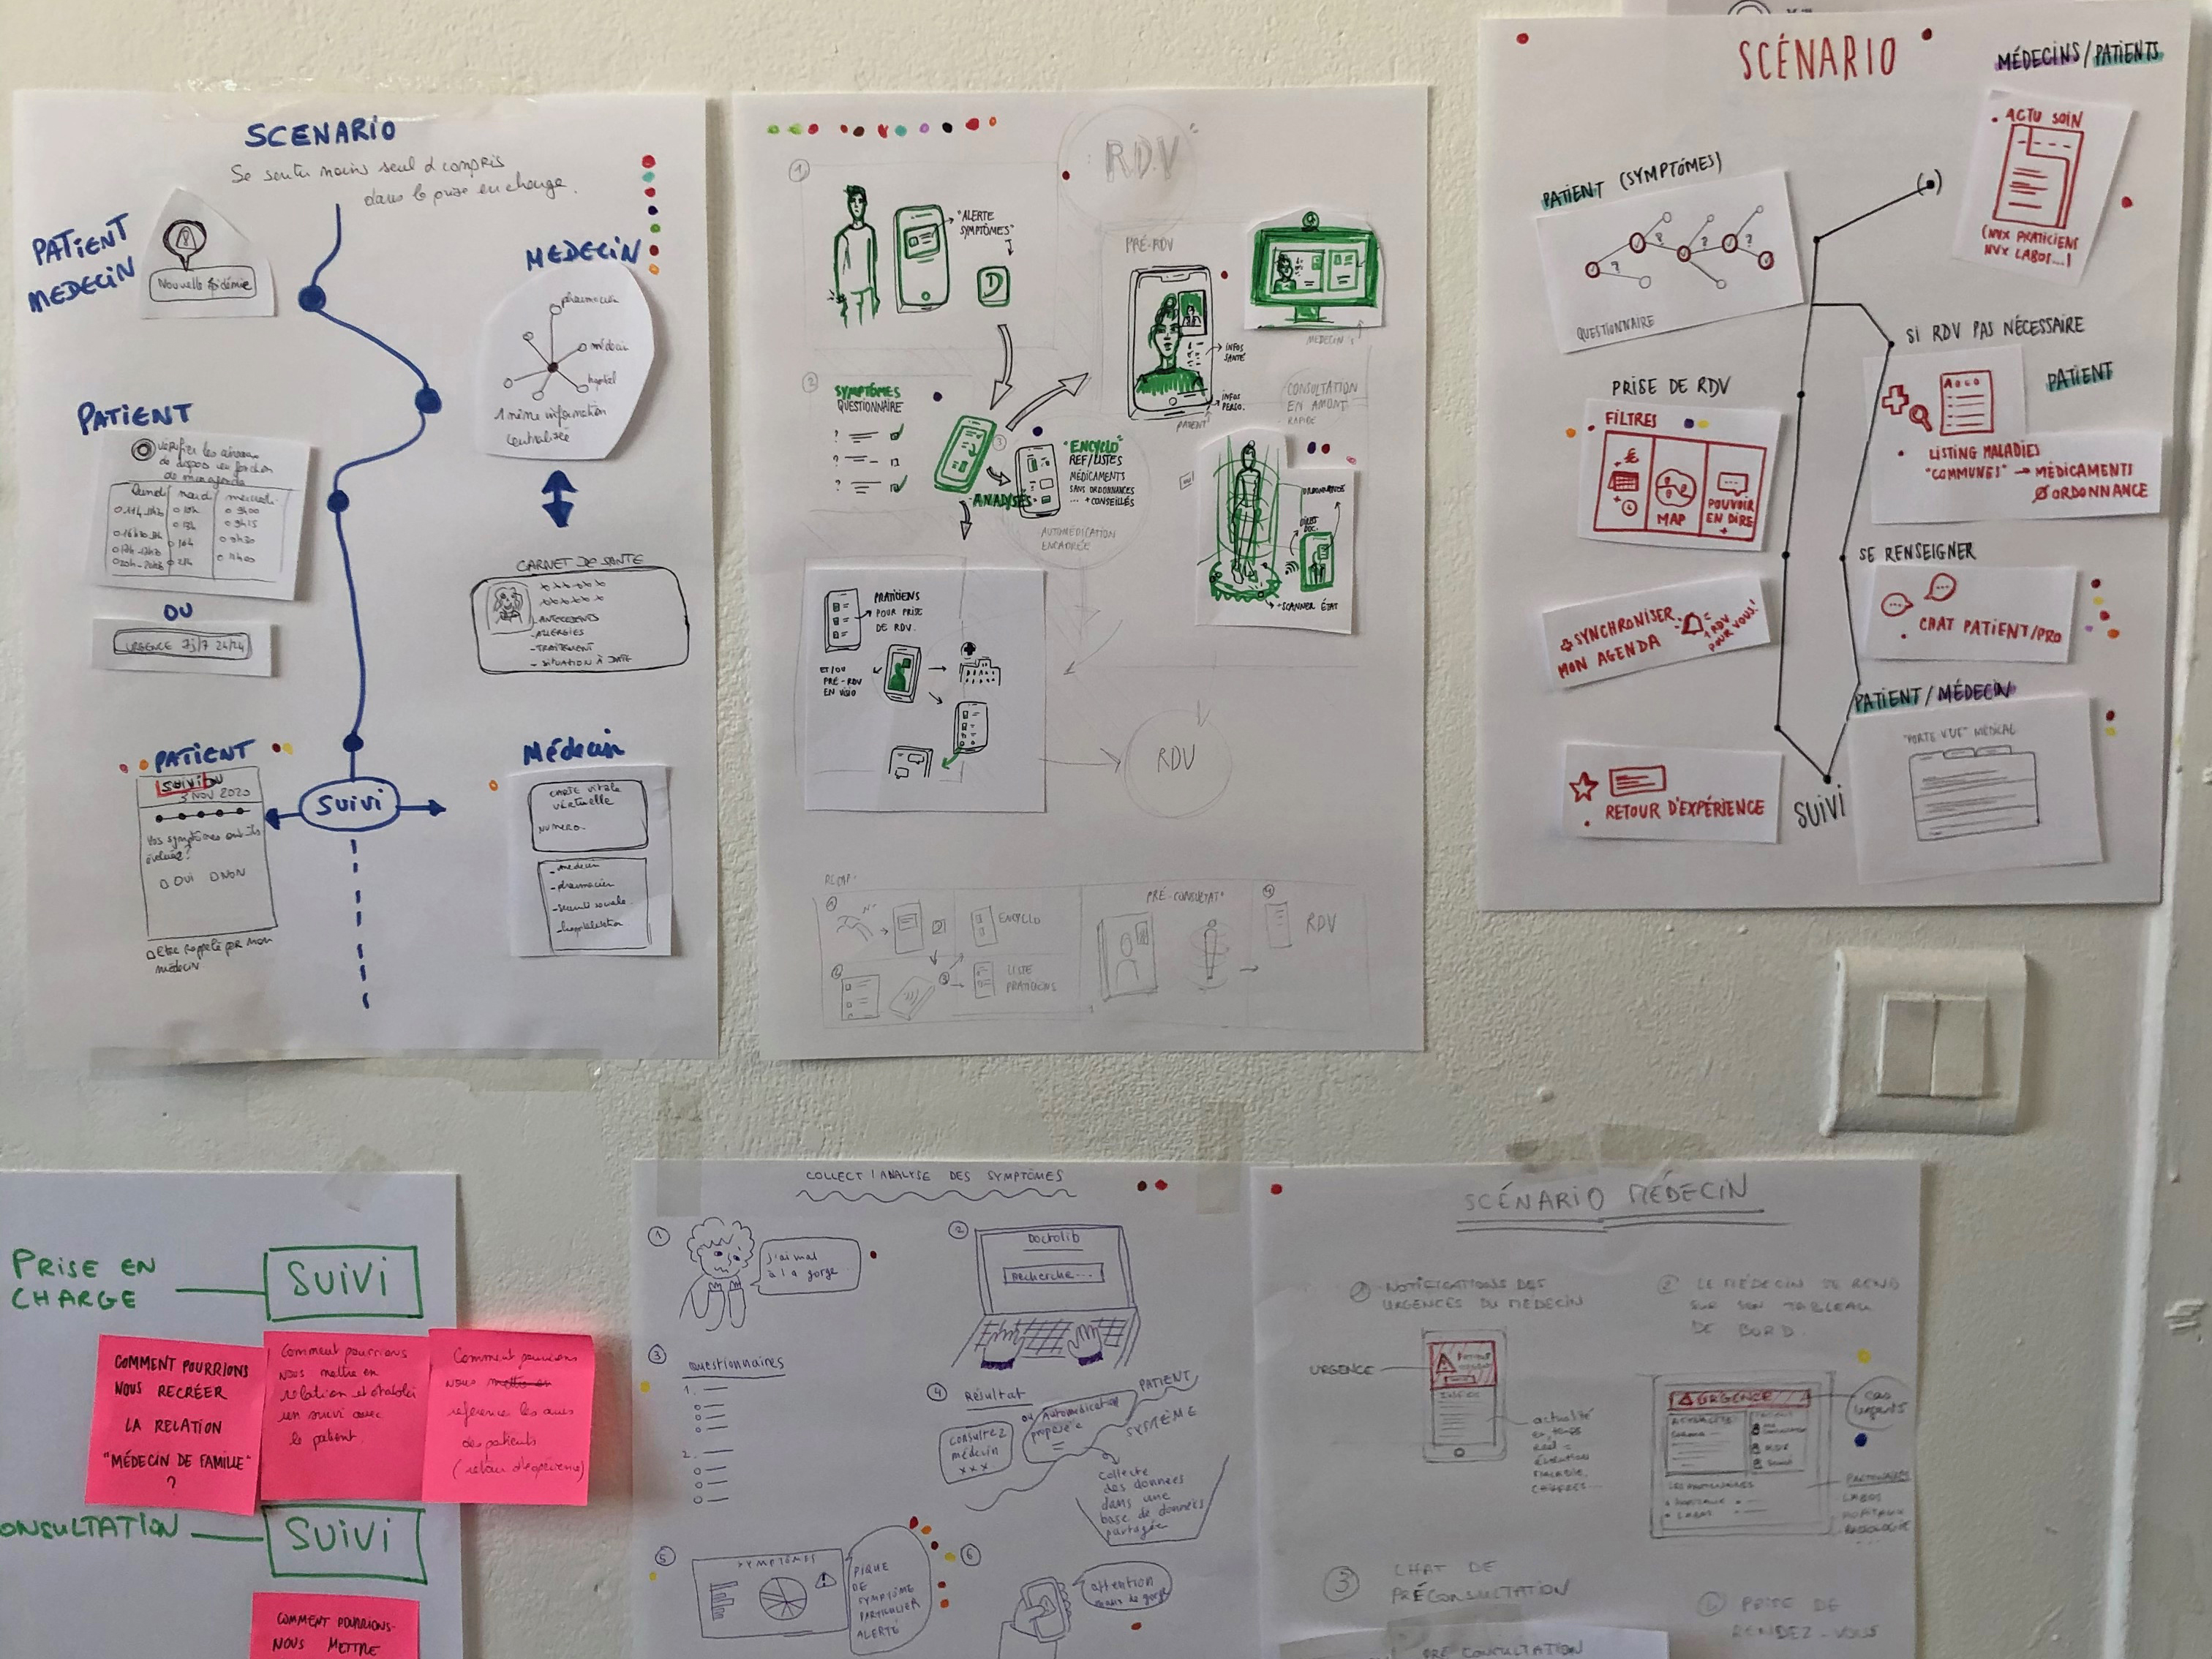 SCENARIO
Se sentir moins seul & compris
dans la prise en charge.
PATIENT
MEDECIN
Nouvelle épidémie
MEDECIN
pharmacien
médecin
hopital
1 même information
centralisée
PATIENT
vérifier les créneaux
de dispos en fonction
de mon agenda
Lundi mardi mercredi
OU
URGENCE 7j/7 24/24
CARNET DE SANTE
- ANTECEDENTS
- ALLERGIES
- TRAITEMENT
- SITUATION À DATE
PATIENT
SUIVI DU
3 NOV 2020
Vos symptômes ont-ils
évolués?
OUI NON
Etre rappelé par mon
médecin
SUIVI
Médecin
CARTE VITALE
VIRTUELLE
NUMERO.
- médecin
- pharmacien
- sécurité sociale
- hospitalisation
RDV
1
"ALERTE
SYMPTÔMES"
D
PRÉ-RDV
INFOS
SANTÉ
INFOS
PERSO.
PATIENT
MEDECIN
2
SYMPTÔMES
QUESTIONNAIRE
?
?
?
3
ANALYSE
"ENCYCLO"
REF/LISTES
MÉDICAMENTS
SANS ORDONNANCES
... + CONSEILLÉS
AUTOMÉDICATION
ENCADRÉE
CONSULTATION
EN AMONT
RAPIDE
ORDONNANCE
DIRECT
DOC.
SCANNER ÉTAT
PRATICIENS
POUR PRISE
DE RDV.
ET/OU
PRÉ-RDV
EN VISIO
RDV
RECAP.
ENCYCLO
LISTE
PRATICIENS
PRÉ-CONSULTAT°
RDV
SCÉNARIO
MÉDECINS/PATIENTS
ACTU SOIN
(NVX PRATICIENS
NVX LABOS...)
PATIENT (SYMPTÔMES)
QUESTIONNAIRE
SI RDV PAS NÉCESSAIRE
PATIENT
LISTING MALADIES
"COMMUNES" → MÉDICAMENTS
Ø ORDONNANCE
PRISE DE RDV
FILTRES
MAP
POUVOIR
EN DIRE
+
SE RENSEIGNER
CHAT PATIENT/PRO
+ SYNCHRONISER
MON AGENDA
1 RDV
POUR VOUS!
PATIENT/MÉDECIN
"PORTE VUE" MÉDICAL
RETOUR D'EXPÉRIENCE
SUIVI
PRISE EN
CHARGE
SUIVI
COMMENT POURRIONS
NOUS RECRÉER
LA RELATION
"MÉDECIN DE FAMILLE"
?
Comment pourrions
nous mettre en
relation et établir
un suivi avec
le patient.
Comment pourrions
nous mettre en
référence les avis
des patients
(retour d'expérience)
ONSULTATION
SUIVI
COMMENT POURRIONS-
NOUS METTRE
COLLECT / ANALYSE DES SYMPTÔMES
1
j'ai mal
à la gorge...
2
Doctolib
recherche...
3
questionnaires
1.
2.
4
Résultat
consultez
médecin
xxx
ou
Automédication
proposée
PATIENT
SYSTÈME
Collecte
des données
dans une
base de données
partagée
5
SYMPTÔMES
PIQUE
DE
SYMPTÔME
PARTICULIER
ALERTÉ
6
attention
maux de gorge
SCÉNARIO MÉDECIN
1 NOTIFICATIONS DES
URGENCES DU MÉDECIN
URGENCE
actualité
en temps
réel =
évolution
maladie,
CHIFFRES...
2 LE MÉDECIN SE REND
SUR SON TABLEAU
DE BORD.
URGENCE
cas
urgents
PARTENAIRES
LABOS
HOPITAUX
RADIOLOGIE
3 CHAT DE
PRÉCONSULTATION
PRE CONSULTATION
4 PRISE DE
RENDEZ-VOUS